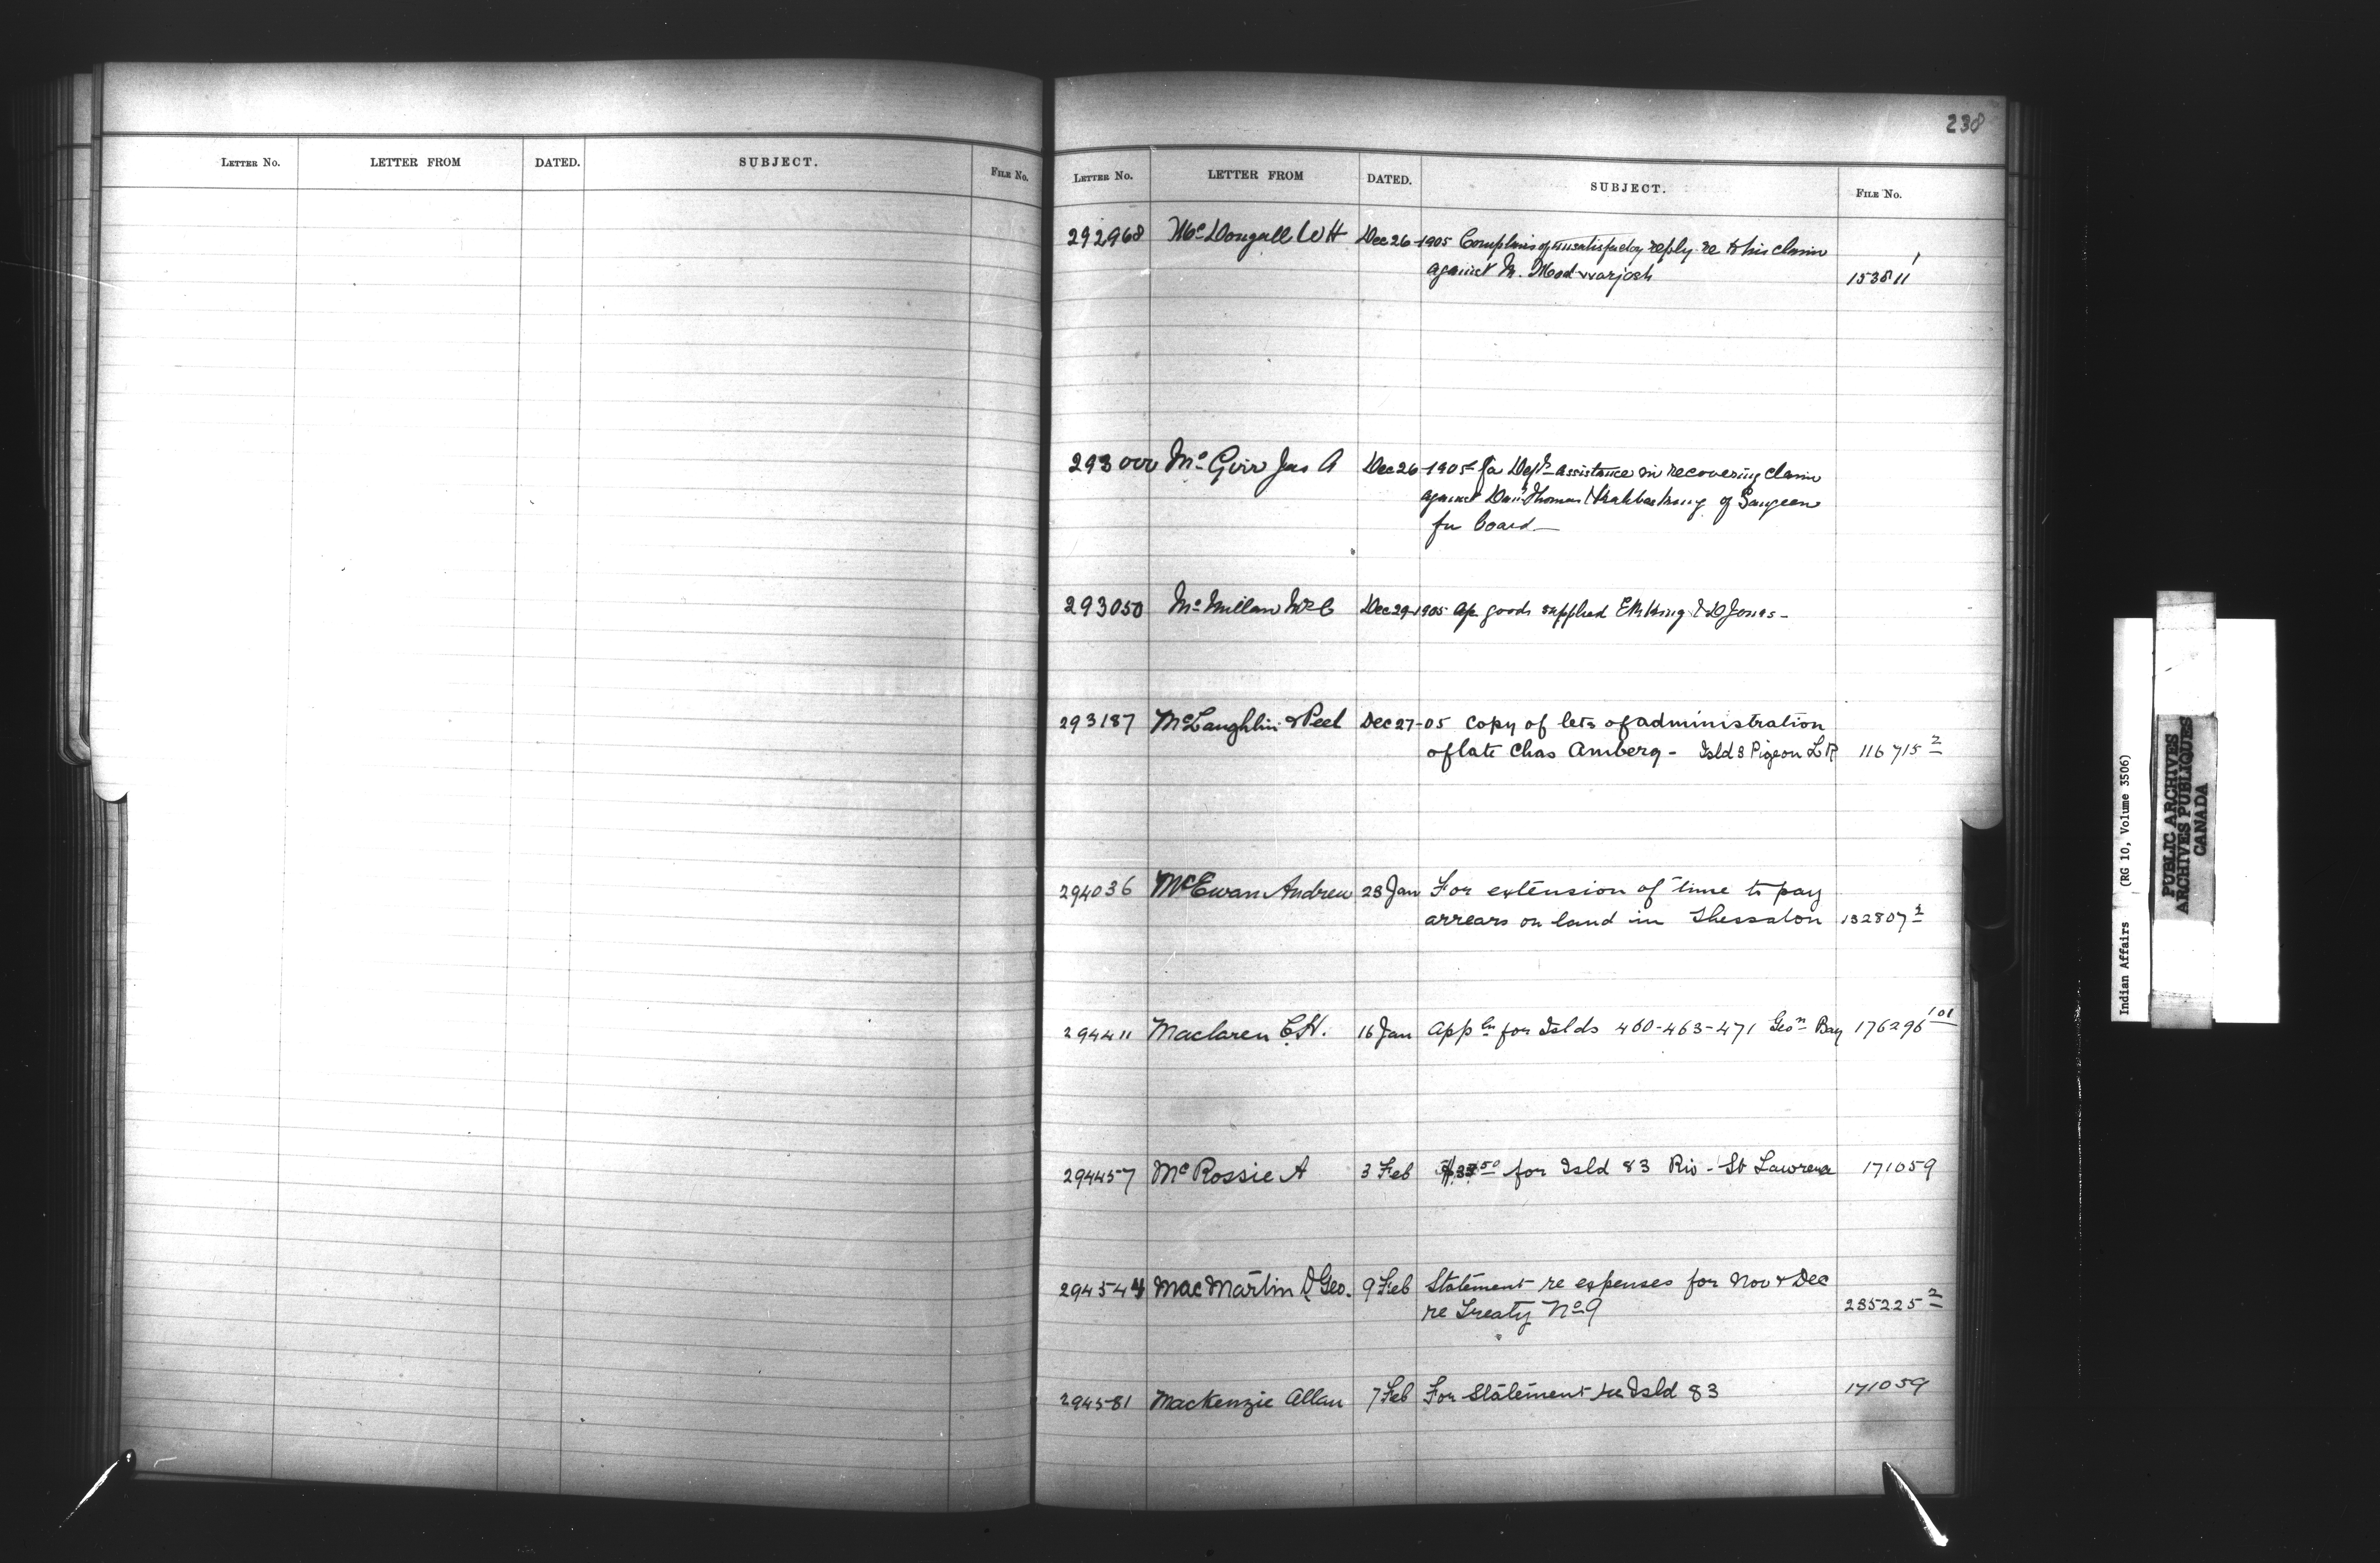 LETTER No. LETTER FROM DATED. SUBJECT. FILE No.
238
LETTER No. LETTER FROM DATED. SUBJECT. FILE No.
292968 McDougall W H Dec 26-1905 Complains of unsatisfactory reply re to his claim
against M. 153811
293000 Mc Jas A Dec 26-1905 for Dept assistance in recovering claim
against Thomas of Saugeen
for board—
293050 McMillan Dec 29-1905 goods supplied Jones-
293187 McLaughlin & Peel Dec 27-05 Copy of lets of administration
of late Chas Amberg - Isld 8 Pigeon L R 116715 2
294036 McEwan Andrew 23 Jan For extension of time to pay
arrears on land in Thessalon 132807 2
294411 Maclaren C.H. 16 Jan Appln for Islds 460-463-471 Geon Bay 176296 101
294457 McRossie A 3 Feb for Isld 83 Riv - St Lawrence 171059
294544 MacMartin D Geo. 9 Feb Statement re expenses for Nov & Dec
re Treaty No 9 235225 2
294581 Mackenzie Allan 7 Feb For Statement re Isld 83 171059
Indian Affairs (RG 10, Volume 3506)
PUBLIC ARCHIVES
ARCHIVES PUBLIQUES
CANADA